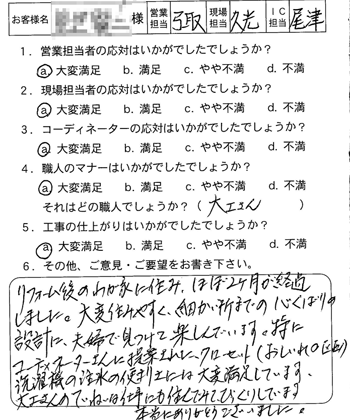 お客様名 様 営業担当 引取 現場担当 久光 IC担当 尾津
1．営業担当者の応対はいかがでしたでしょうか？
ⓐ 大変満足 b. 満足 c. やや不満 d. 不満
2．現場担当者の応対はいかがでしたでしょうか？
ⓐ 大変満足 b. 満足 c. やや不満 d. 不満
3．コーディネーターの応対はいかがでしたでしょうか？
ⓐ 大変満足 b. 満足 c. やや不満 d. 不満
4．職人のマナーはいかがでしたでしょうか？
ⓐ 大変満足 b. 満足 c. やや不満 d. 不満
それはどの職人でしょうか？（ 大工さん ）
5．工事の仕上がりはいかがでしたでしょうか？
ⓐ 大変満足 b. 満足 c. やや不満 d. 不満
6．その他、ご意見・ご要望をお書き下さい。
リフォーム後のわが家に住み、ほぼ2ヶ月が経過
しました。大変住みやすく、細かい所までの心くばりの
設計に、夫婦で見つけて楽しんでいます。特に
コーディネーターさんに提案された、クローゼット（おしいれ
洗濯機の注水の便利さには大変満足しています。
大工さんのていねいな仕事にも住んでみてびっくりしています
本当にありがとうございました。